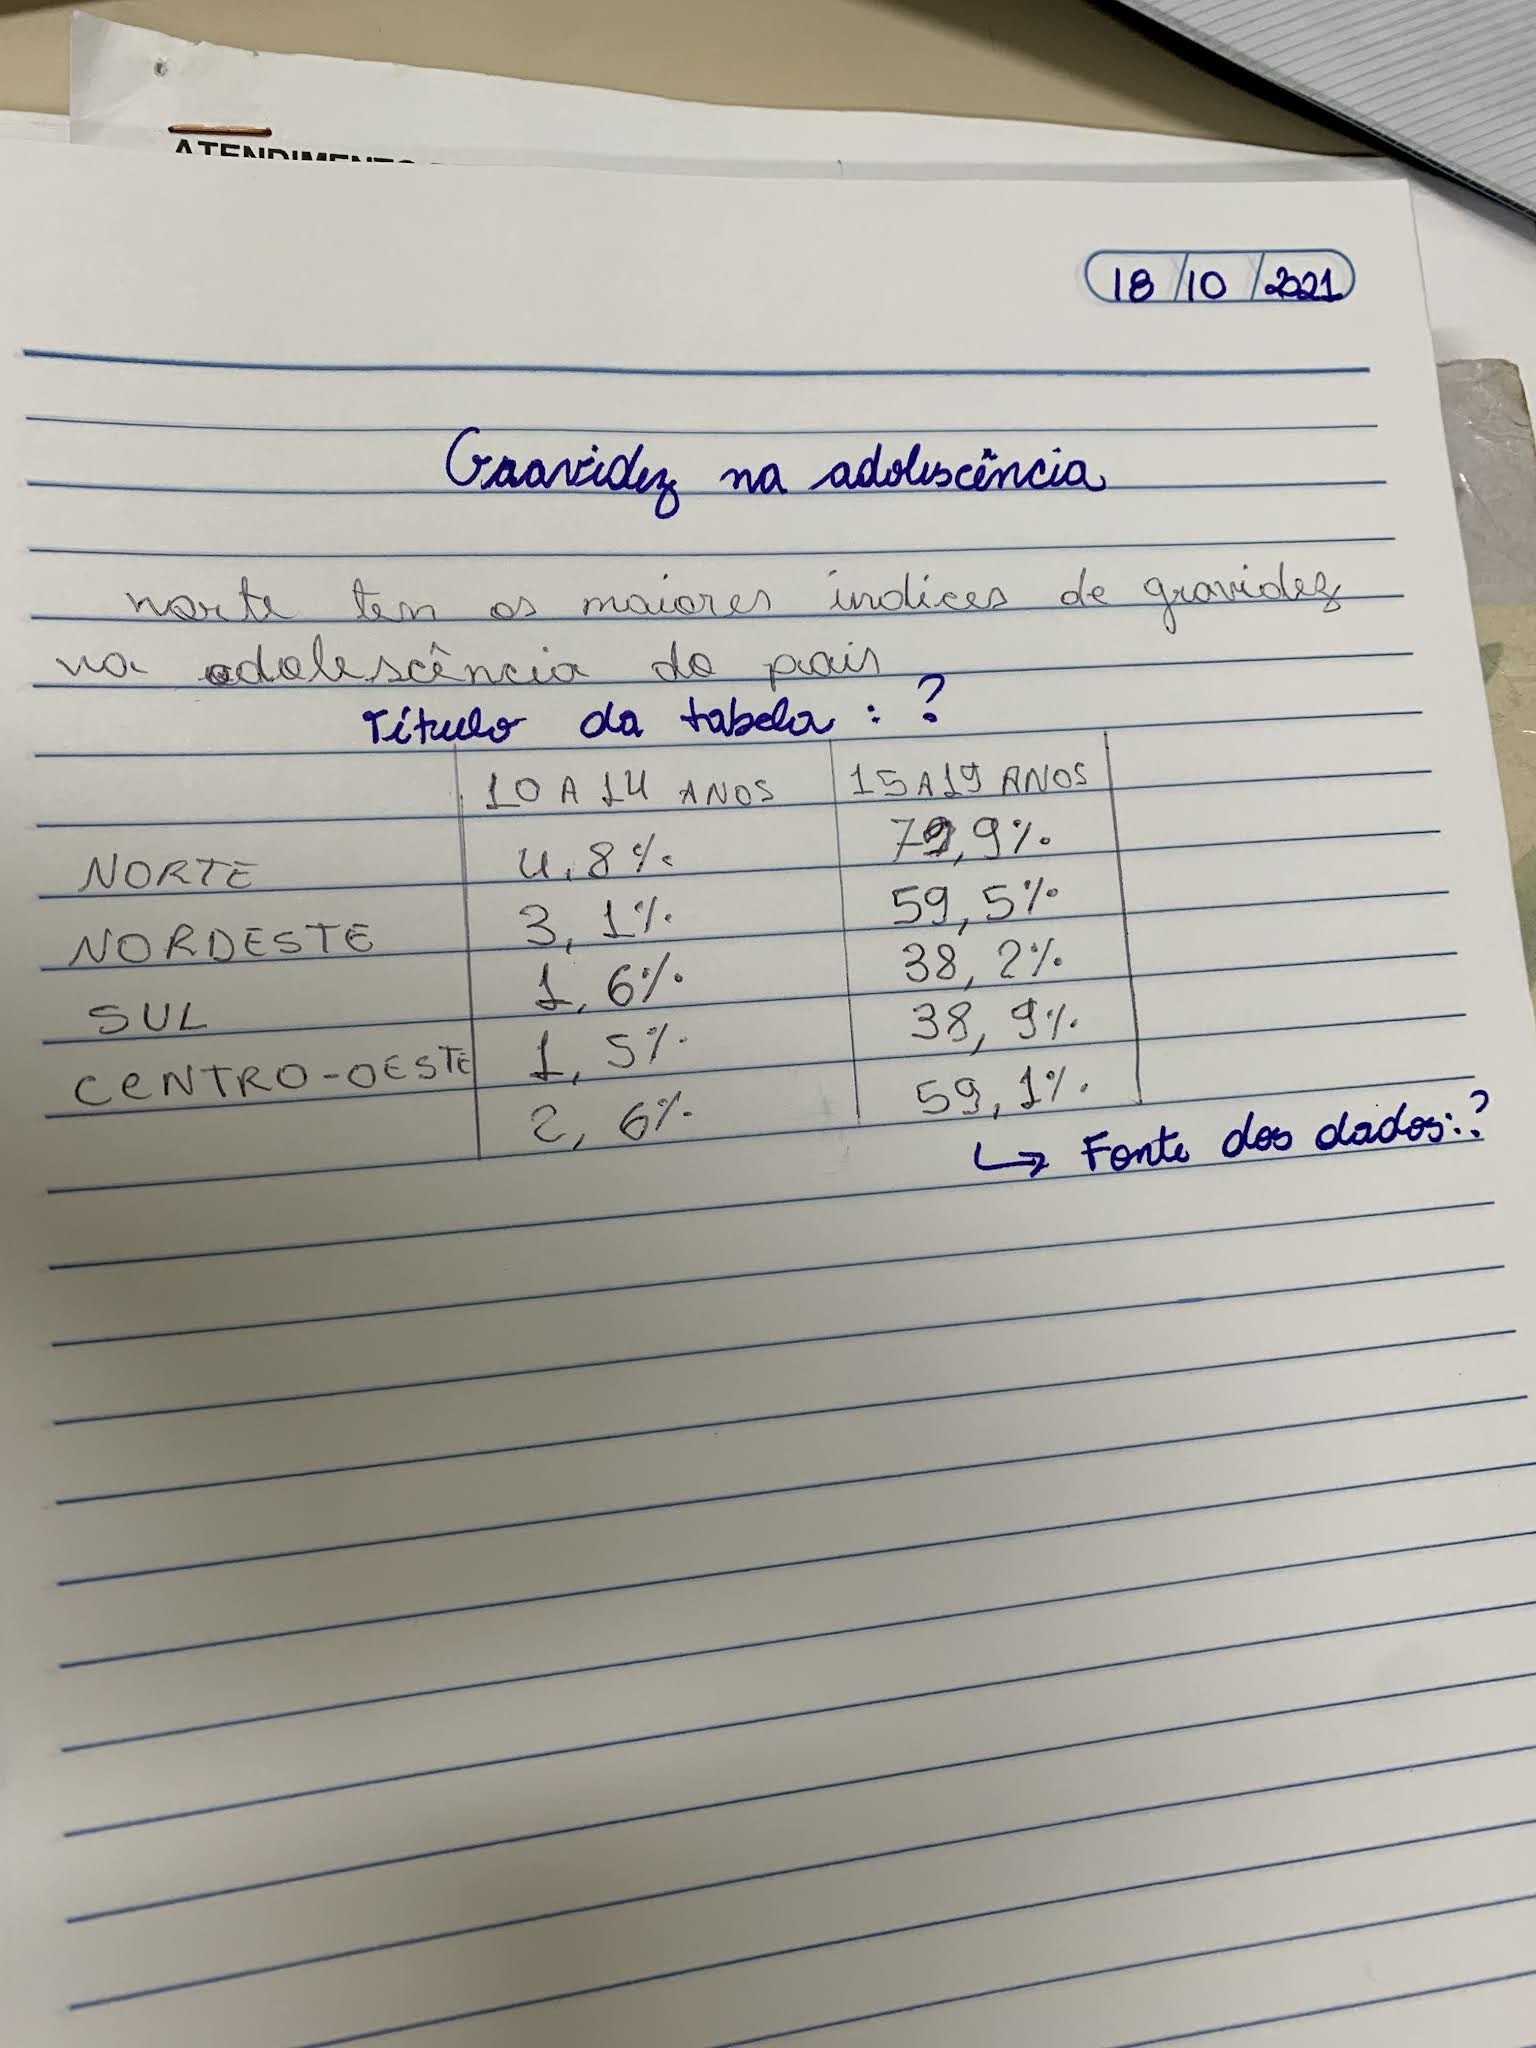 18/10/2021
Gravidez na adolescência
norte tem os maiores indices de gravidez
na adolescência do pais
Título da tabela : ?
10 A 14 ANOS 15 A 19 ANOS
NORTE 4,8% 79,9%
NORDESTE 3,1% 59,5%
SUL 1,6% 38,2%
CENTRO-OESTE 1,5% 38,9%
2,6% 59,1%
↳ Fonte dos dados:?